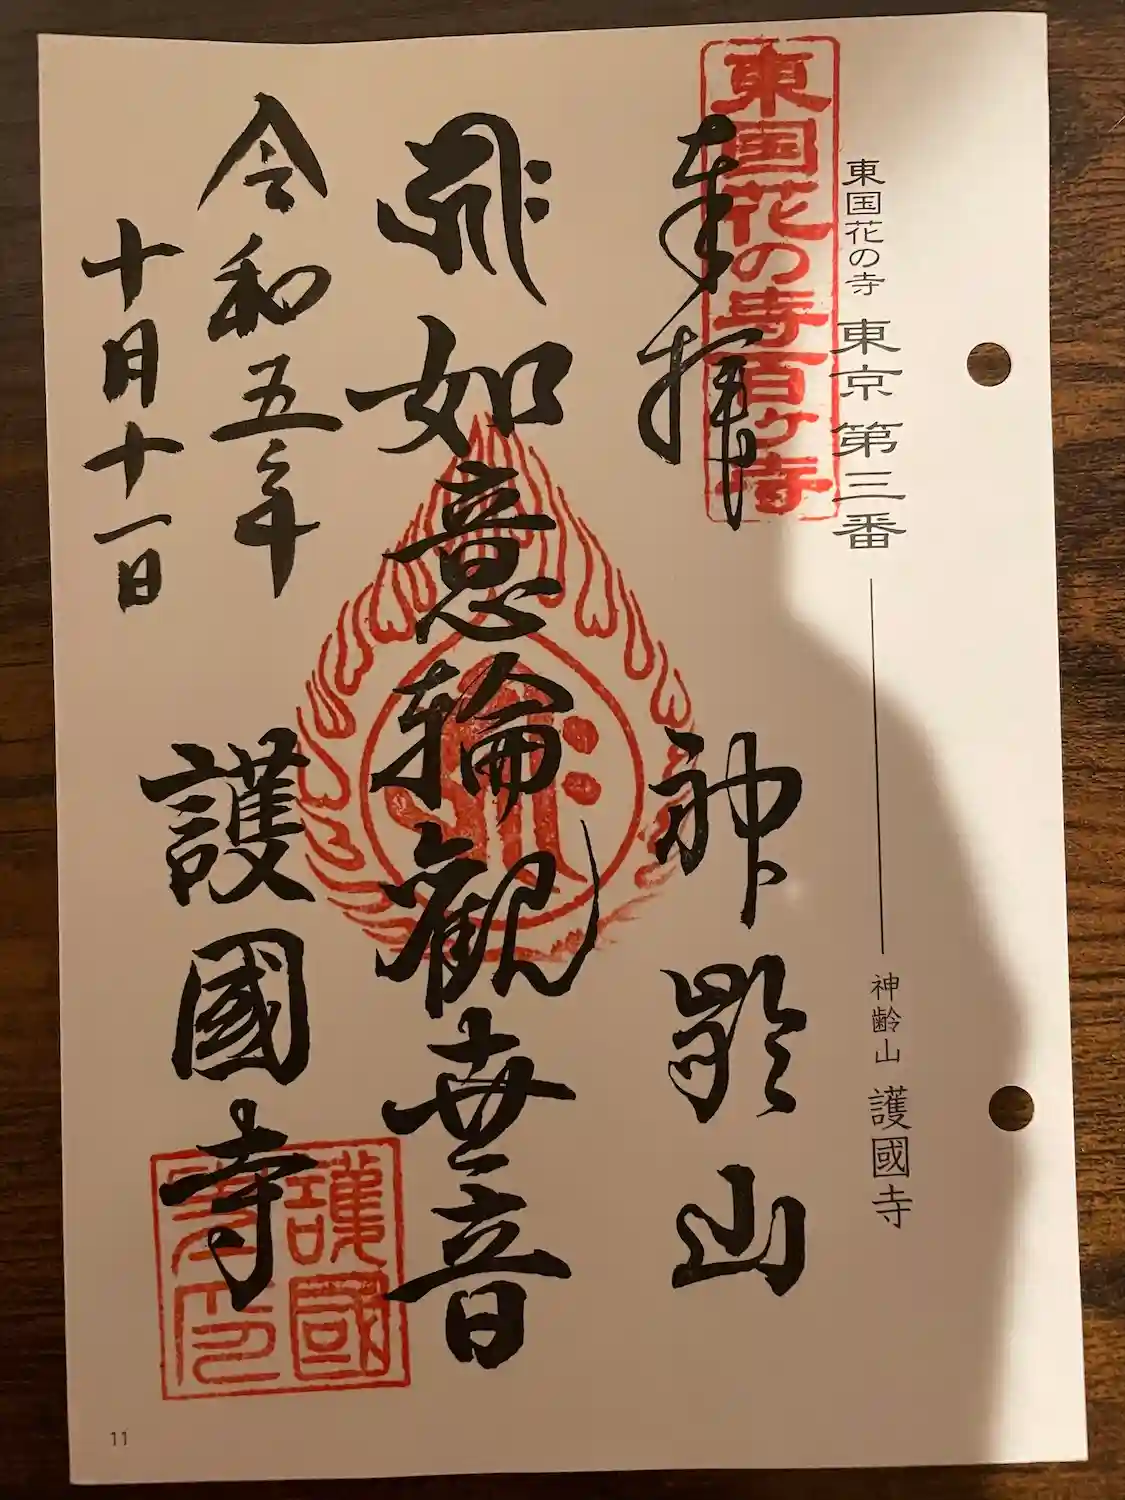 東国花の寺 東京 第三番
神齢山 護國寺
東国花の寺百ヶ寺
奉拝
神齢山
如意輪観世音
護國寺
令和五年
十月十一日
護國
寺印
11